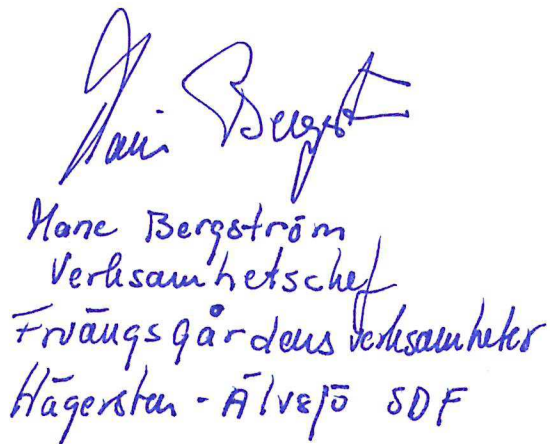 Marie Bergst
Marie Bergström
Verksamhetschef
Fruängsgårdens verksamheter
Hägersten - Älvsjö SDF